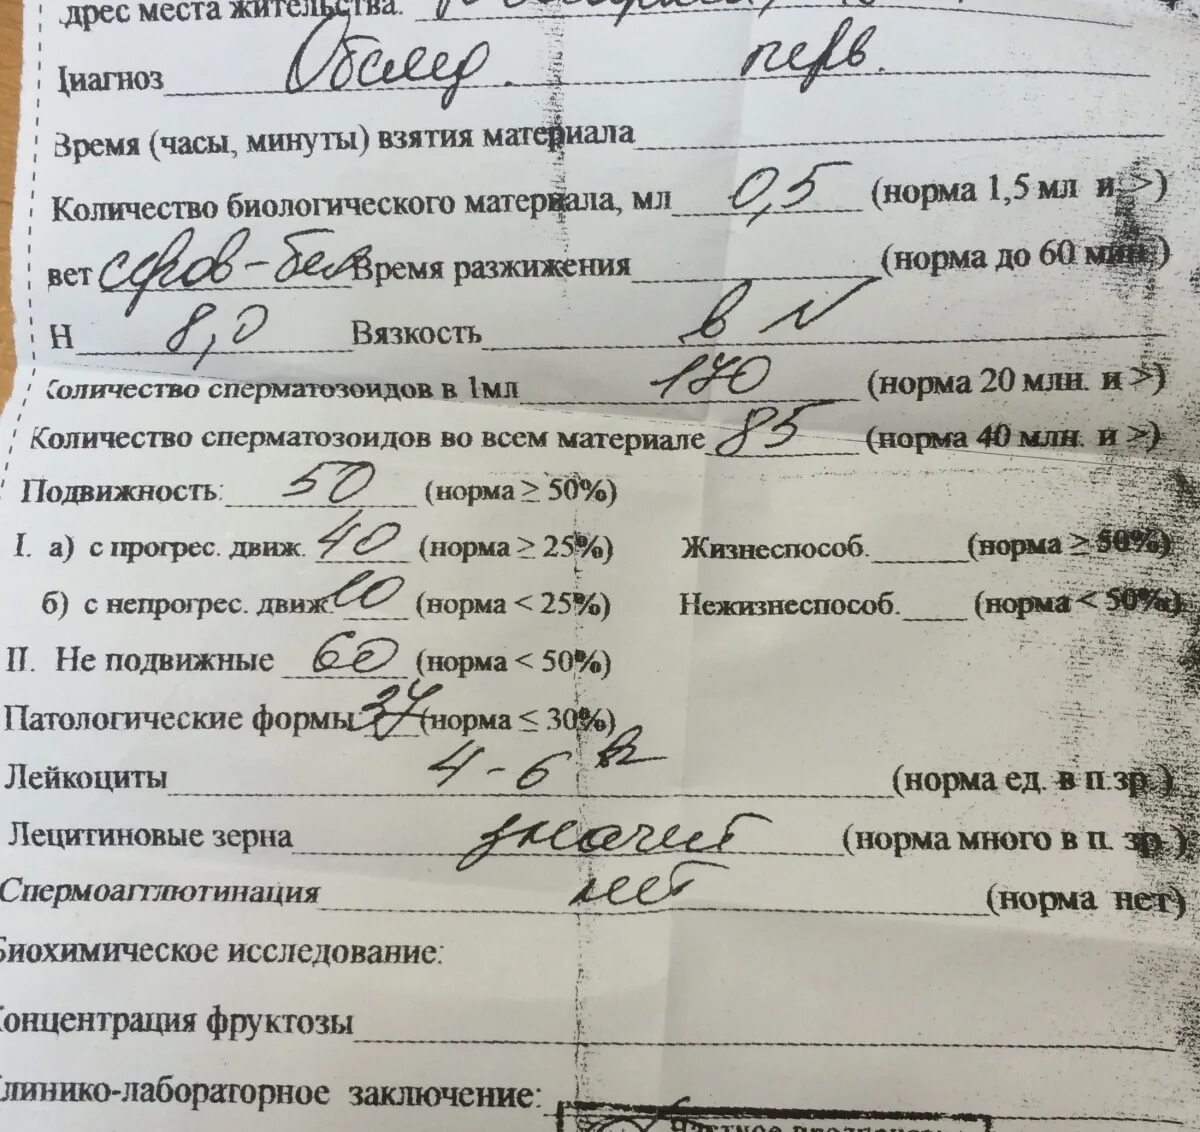 дрес места жительства:
Диагноз Обслед. перв.
Время (часы, минуты) взятия материала
Количество биологического материала, мл 0,5 (норма 1,5 мл и >)
вет серов-бел Время разжижения (норма до 60 мин.)
Н 8,0 Вязкость в N
Количество сперматозоидов в 1мл 170 (норма 20 млн. и >)
Количество сперматозоидов во всем материале 85 (норма 40 млн. и >)
Подвижность: 50 (норма ≥ 50%)
I. а) с прогрес. движ. 40 (норма ≥ 25%) Жизнеспособ. (норма ≥ 50%)
б) с непрогрес. движ. 10 (норма < 25%) Нежизнеспособ. (норма < 50%)
II. Не подвижные 60 (норма < 50%)
Патологические формы 37 (норма ≤ 30%)
Лейкоциты 4-6 (норма ед. в п.зр.)
Лецитиновые зерна значит (норма много в п. зр.)
Спермоагглютинация нет (норма нет)
Биохимическое исследование:
Концентрация фруктозы
Клинико-лабораторное заключение: